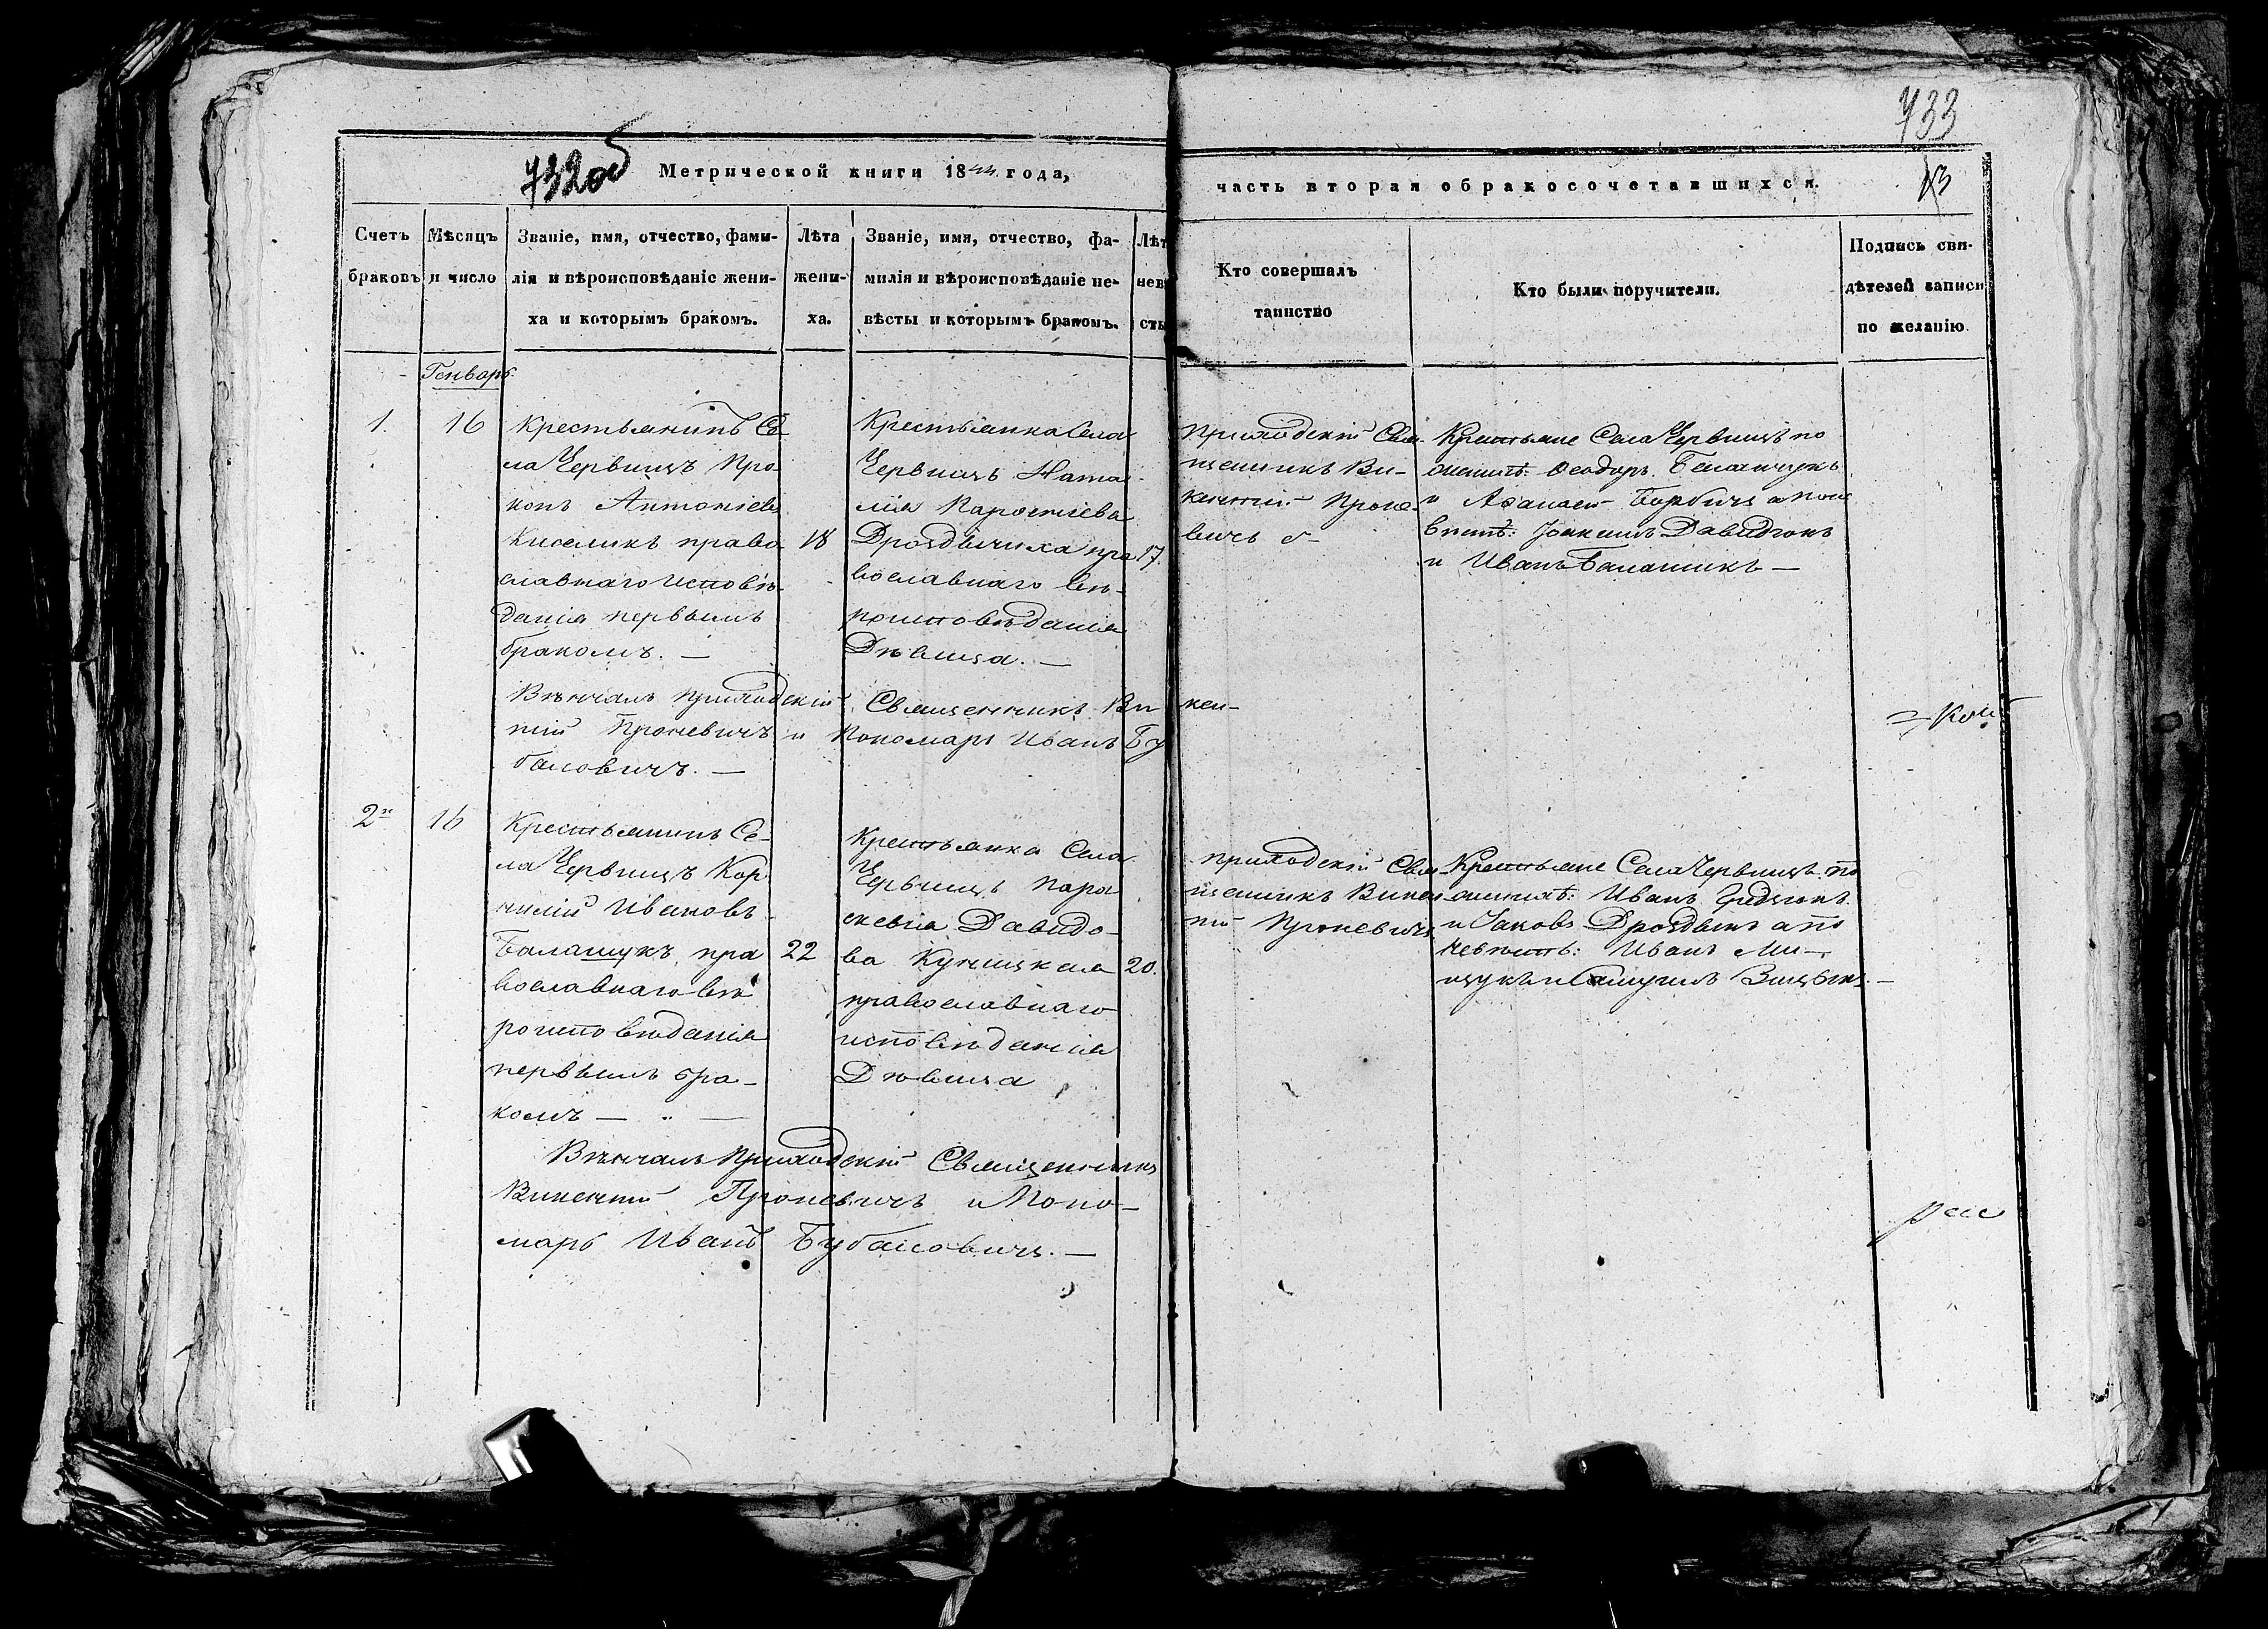 733
732об
Метрической книги 1844 года,
часть вторая о бракосочетавшихся.
13
Счетъ браковъ
Мѣсяцъ и число
Званіе, имя, отчество, фами-
лія и вѣроисповѣданіе жени-
ха и которымъ бракомъ.
Лѣта
жени-
ха.
Званіе, имя, отчество, фа-
милія и вѣроисповѣданіе не-
вѣсты и которымъ бракомъ.
Лѣт
нев
сты
Кто совершалъ
таинство
Кто были поручители.
Подпись сви-
дѣтелей записи
по желанію.
Генварь
1.
16
Крестьянинъ Се
ла Червищъ Про
копъ Антоніевъ
Киселикъ право
славнаго исповѣ-
данія первымъ
бракомъ. —
18
Крестьянка Села
Червищъ Ната
лія
Дроздычиха пра
вославнаго вѣ-
роисповѣданія
Дѣвица. —
17.
Приходскій Свя-
щенникъ Ви-
кентій Проне-
вичъ
Крестьяне Села Червищъ по
женихѣ: Ѳеодоръ
и Афанасъ а по не
вѣстѣ: Іоакимъ Давидюкъ
и Иванъ —
Вѣнчалъ приходскій Священникъ Ви кен-
тій Проневичъ и Пономарь Иванъ Бу
басовичъ. —
2й
16
Крестьянинъ Се-
ла Червищъ Кор
нилій Ивановъ
Балащукъ, пра
вославнаго вѣ
роисповѣданія
первымъ бра-
комъ —
22
Крестьянка Села
Червищъ Пара
скевія Давидо-
ва Куницкая
православнаго
исповѣданія
Дѣвица
20.
приходскій Свя-
щенникъ Викен
тій Проневичъ
Крестьяне Села Червищъ по
женихѣ: Иванъ
и Іаковъ Дроздыкъ а по
невѣстѣ: Иванъ Ми-
щукъ и Самуилъ
Вѣнчалъ Приходскій Священникъ
Викентій Проневичъ и Поно-
марь Иванъ Бубасовичъ. —